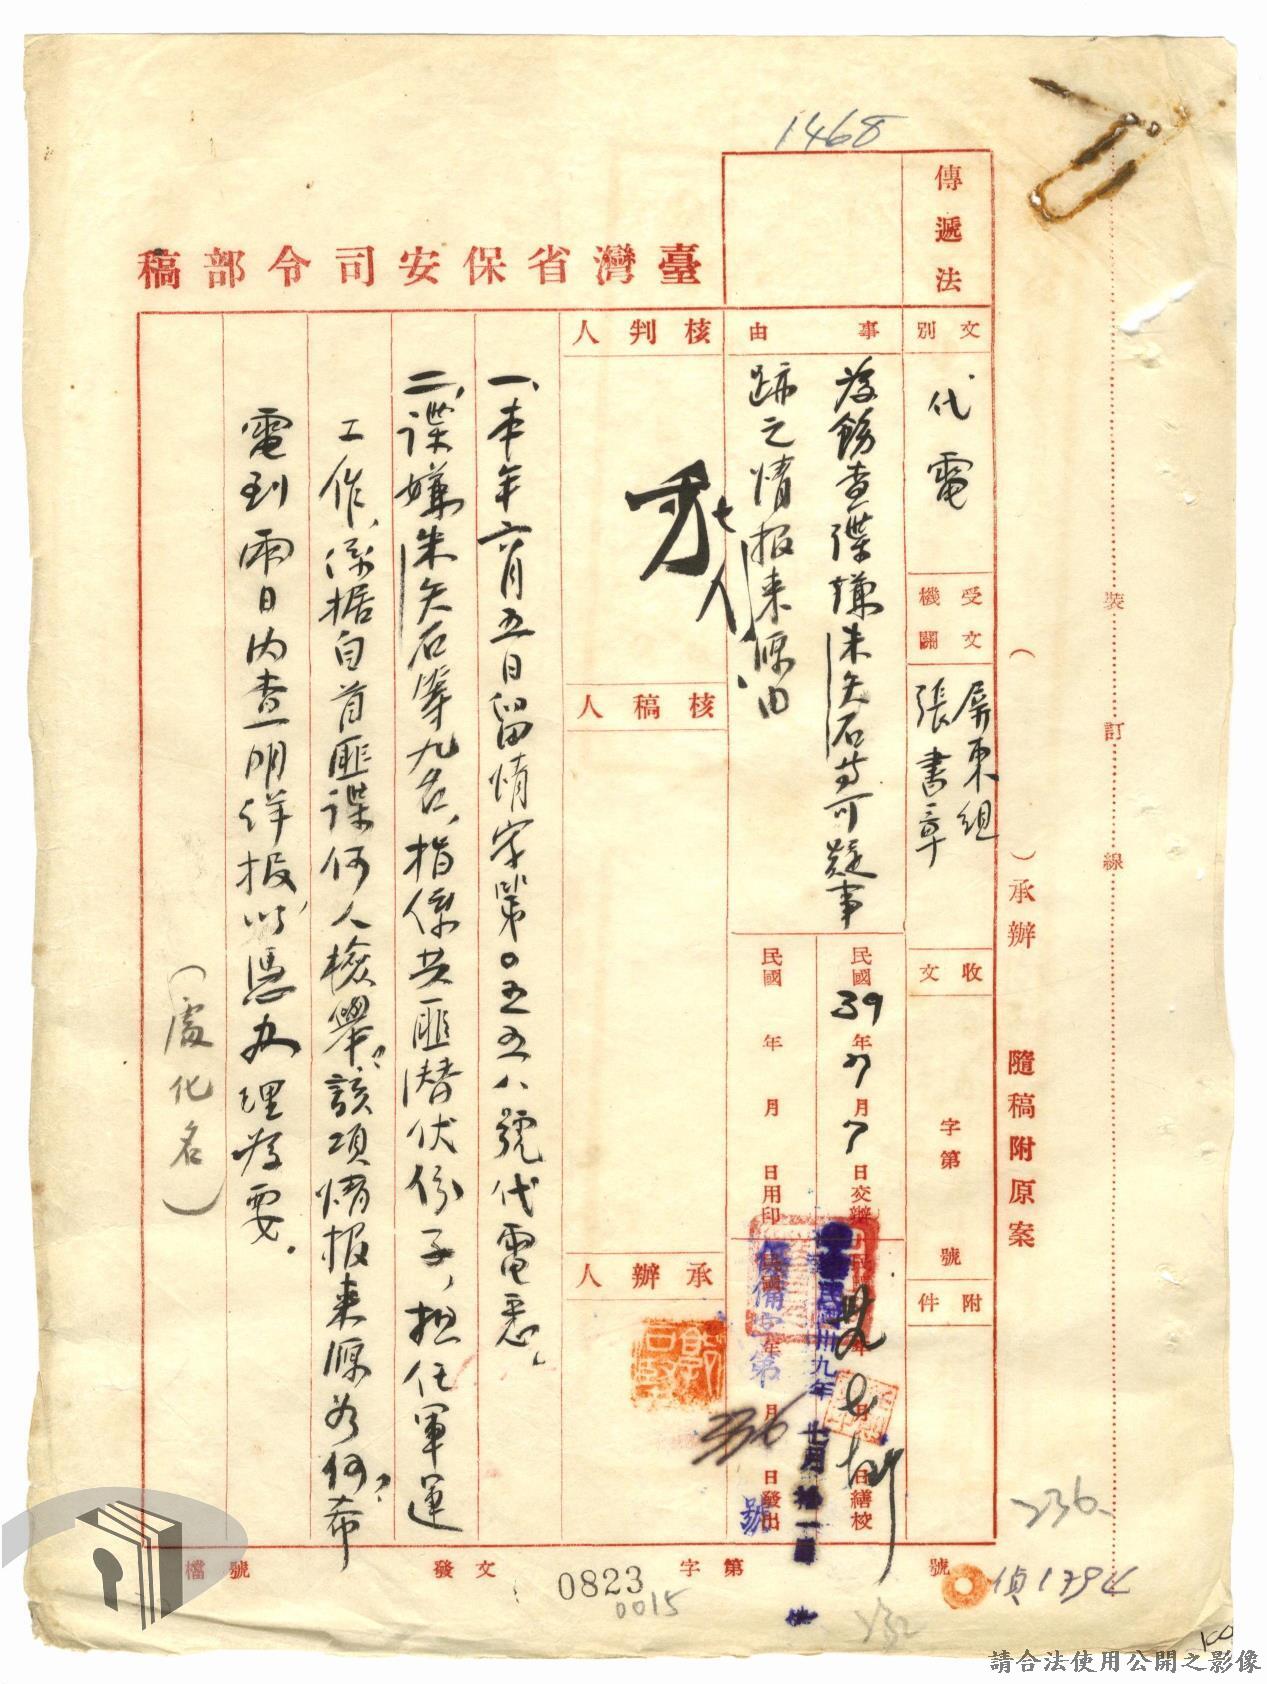 1468
傳遞法
臺灣省保安司令部稿
文別
代電
事由
為飭查諜嫌朱矢石等可疑事
跡之情报来源由
受文機關
屏東組
張書章
核判人
核稿人
承辦人
收文
字第
號
附件
民國39年7月7日交辦
民國年月日繕校
民國年月日用印
民國年月日發出
民國卅九年七月拾一日
字第
336
號
一、本年六月五日留情字第0五五八號代電悉。
二、諜嫌朱矢石等九名,指係共匪潜伏份子,担任軍運
工作,係据自首匪諜何人檢舉?該項情报来源为何?希
電到兩日内查明详报,以憑办理為要。
(處化名)
檔號
發文
字第
號
0823
0015
232
偵1794
236
100
裝訂線
( )承辦
隨稿附原案
請合法使用公開之影像